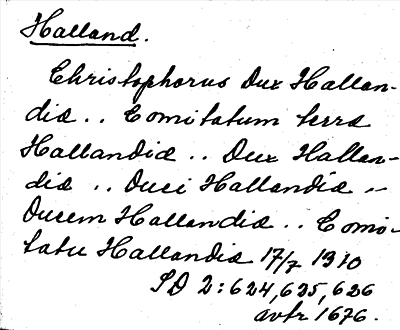 Halland.
Christophorus Dux Hallan-
diæ .. Comitatum terræ
Hallandiæ .. Dux Hallan-
diæ .. Duci Hallandiæ ..
Ducem Hallandiæ .. Comi-
tatu Hallandiæ 17/7 1310
SD 2:624,625,626
avtr 1676.